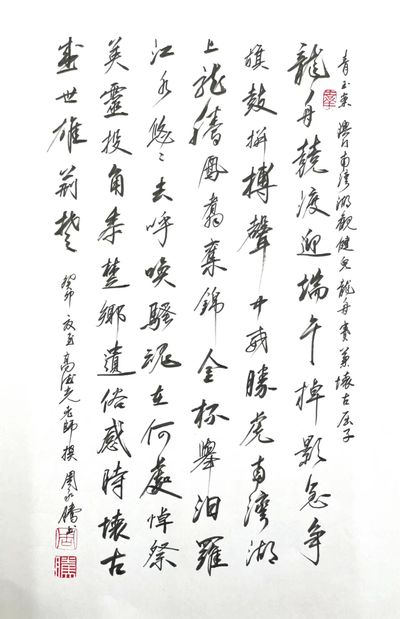 青玉案 南灣湖觀健兒龍舟賽兼懷古屈子
龍舟競渡迎端午棹影急爭
旗鼓拼搏聲中威勝虎南灣湖
上龍騰鳳翥奪錦金杯舉汨羅
江水悠々去呼喚騷魂在何處悼祭
英靈投角黍楚鄉遺俗感時懷古
盛世雄荊楚
癸卯夏至高光老師撰 周騰书